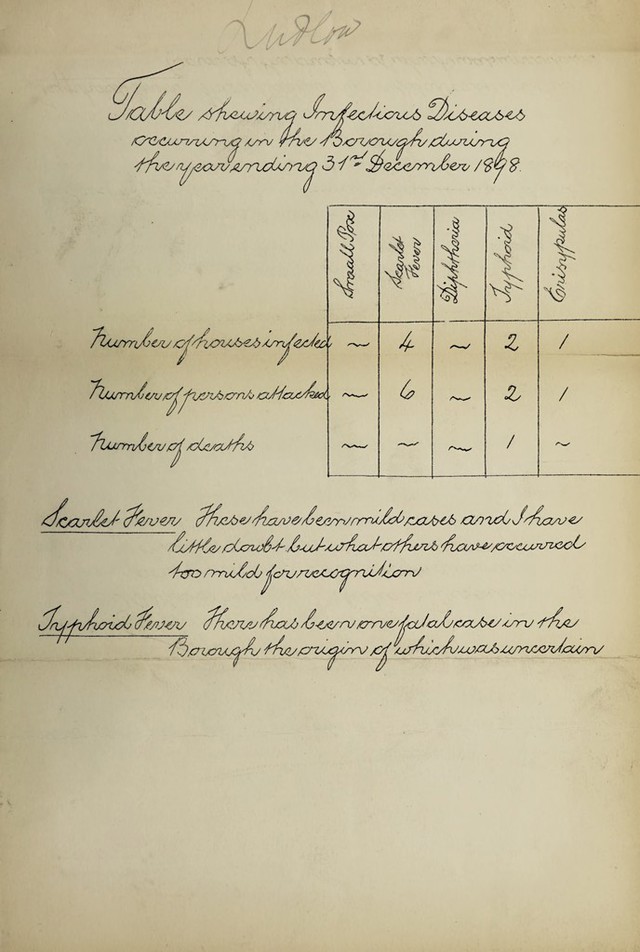 Ludlow
Table shewing Infectious Diseases
occurring in the Borough during
the year ending 31st December 1898.
Small Pox
Scarlet Fever
Diphtheria
Typhoid
Erisypulas
Number of houses infected ~ 4 ~ 2 1
Number of persons attacked ~ 6 ~ 2 1
Number of deaths ~ ~ ~ 1 ~
Scarlet Fever These have been mild cases and I have
little doubt but what others have occurred
too mild for recognition
Typhoid Fever There has been one fatal case in the
Borough the origin of which was uncertain